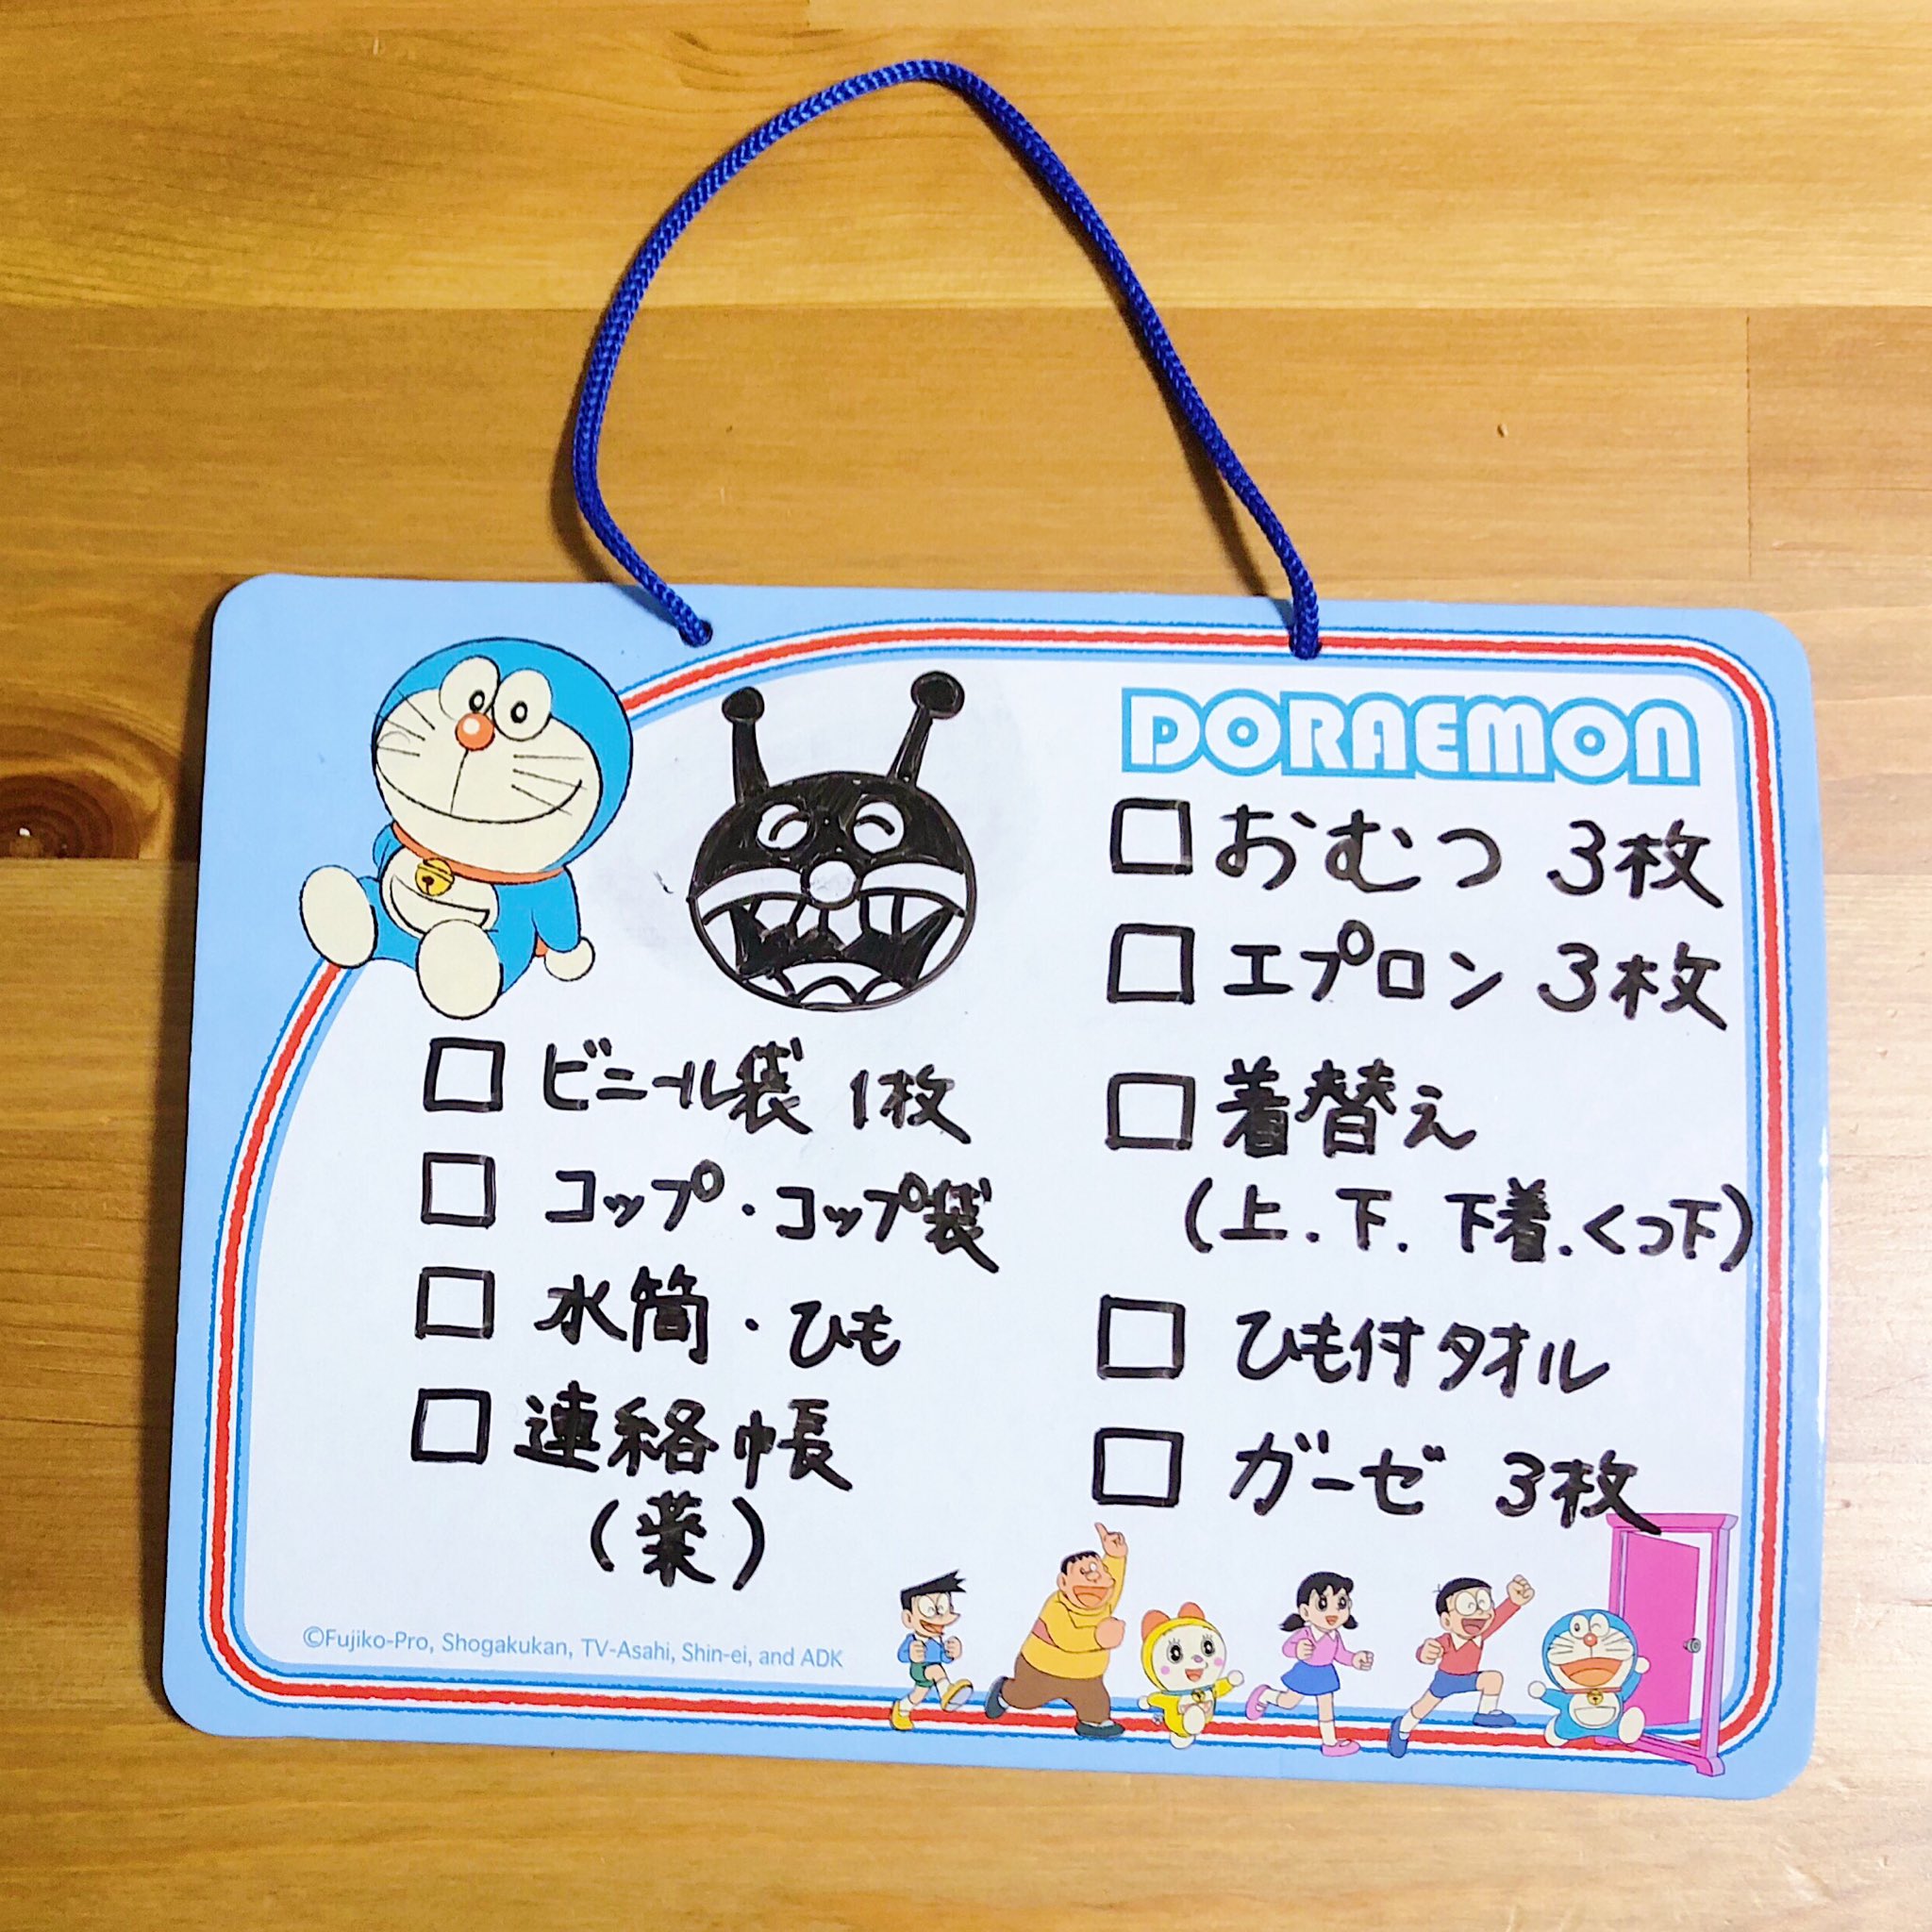 DORAEMON
□ おむつ 3枚
□ エプロン 3枚
□ 着替え
(上.下.下着.くつ下)
□ ひも付タオル
□ ガーゼ 3枚
□ ビニール袋 1枚
□ コップ・コップ袋
□ 水筒・ひも
□ 連絡帳
(薬)
©Fujiko-Pro, Shogakukan, TV-Asahi, Shin-ei, and ADK